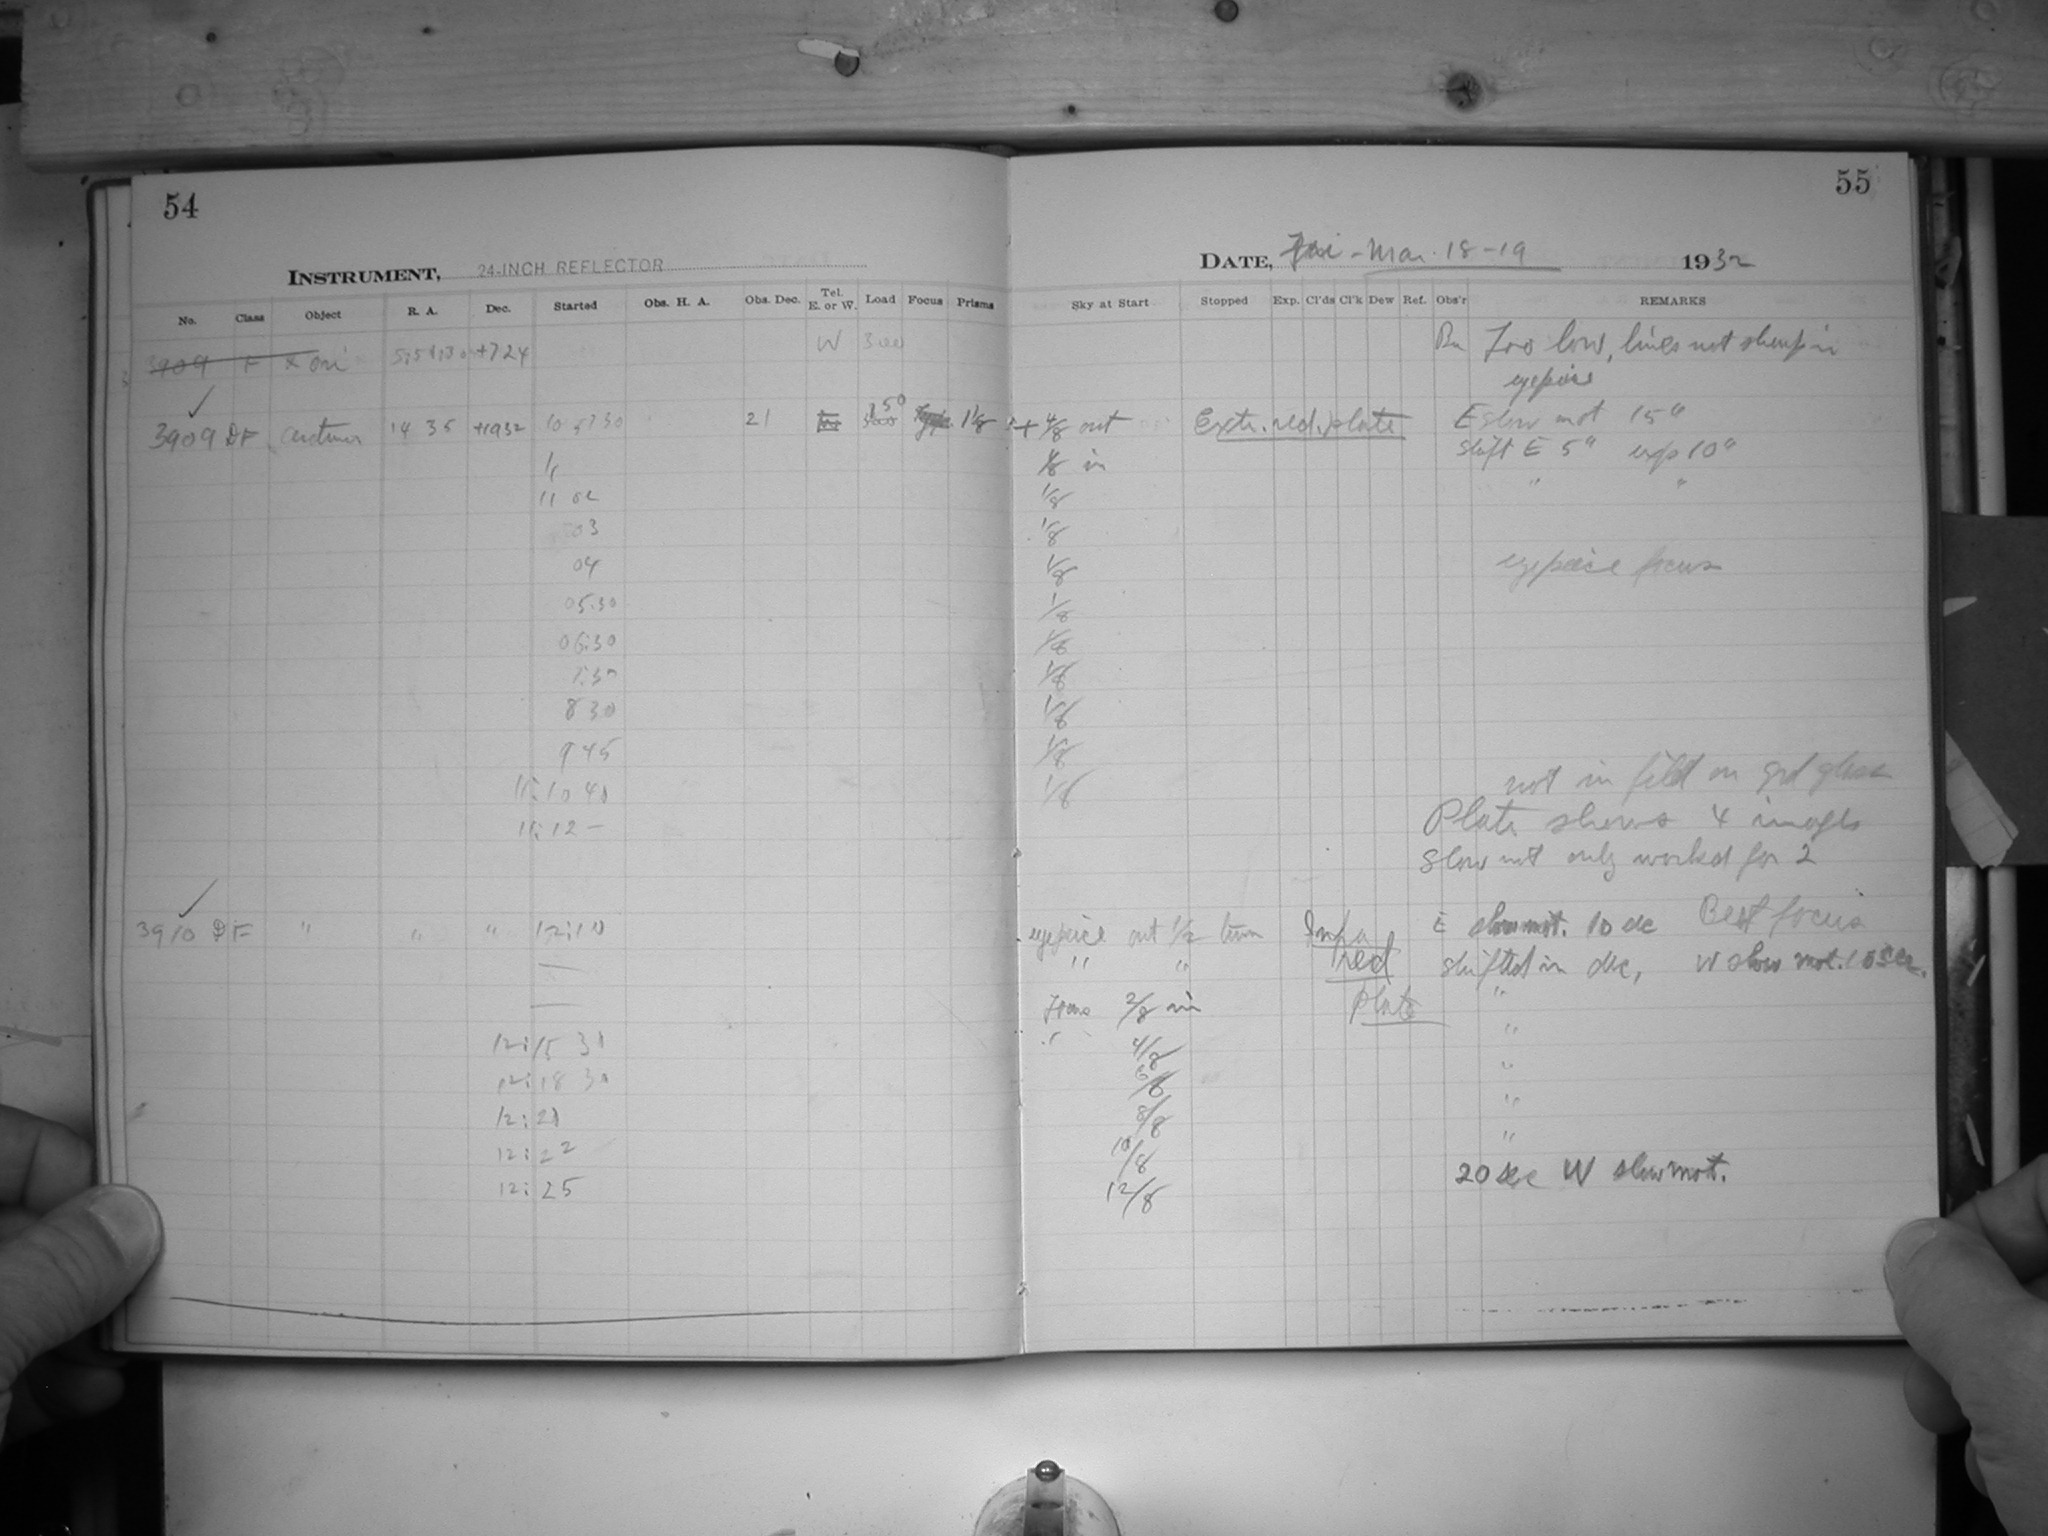 54
INSTRUMENT, 24-INCH REFLECTOR
No. Class Object R. A. Dec. Started Obs. H. A. Obs. Dec. Tel. E. or W. Load Focus Prisms
3909 F α Ori +724 W 300
3909 DF Arcturus 14 35 +1932 10 57 30 21 150 1 1/8
11
11 02
03
04
05.30
06:30
7:30
8 30
9 45
11:10 40
11:12 –
3910 DF " " " 12:10
12:15 30
12:18 30
12:20
12:22
12:25
55
DATE, Fri - Mar. 18-19 1932
Sky at Start Stopped Exp. Cl'ds Cl'k Dew Ref. Obs'r REMARKS
Too low, lines not sharp in
eyepiece
+ 4/8 out Extr. red. plate E slow mot 15"
1/8 in shift E 5" exp 10"
1/8 " "
1/8
1/8 eyepiece focus
1/8
1/8
1/8
1/8
1/8
1/8 not in field on grd glass
Plate shows 4 images
Slow mot only worked for 2
eyepiece out 1/2 turn Infra E slow mot. 10 sec Best focus
" " red shifted in dec, W slow mot. 10 sec.
2/8 in plate "
" 4/8 "
6/8 "
8/8 "
10/8 "
12/8 20 sec W slow mot.